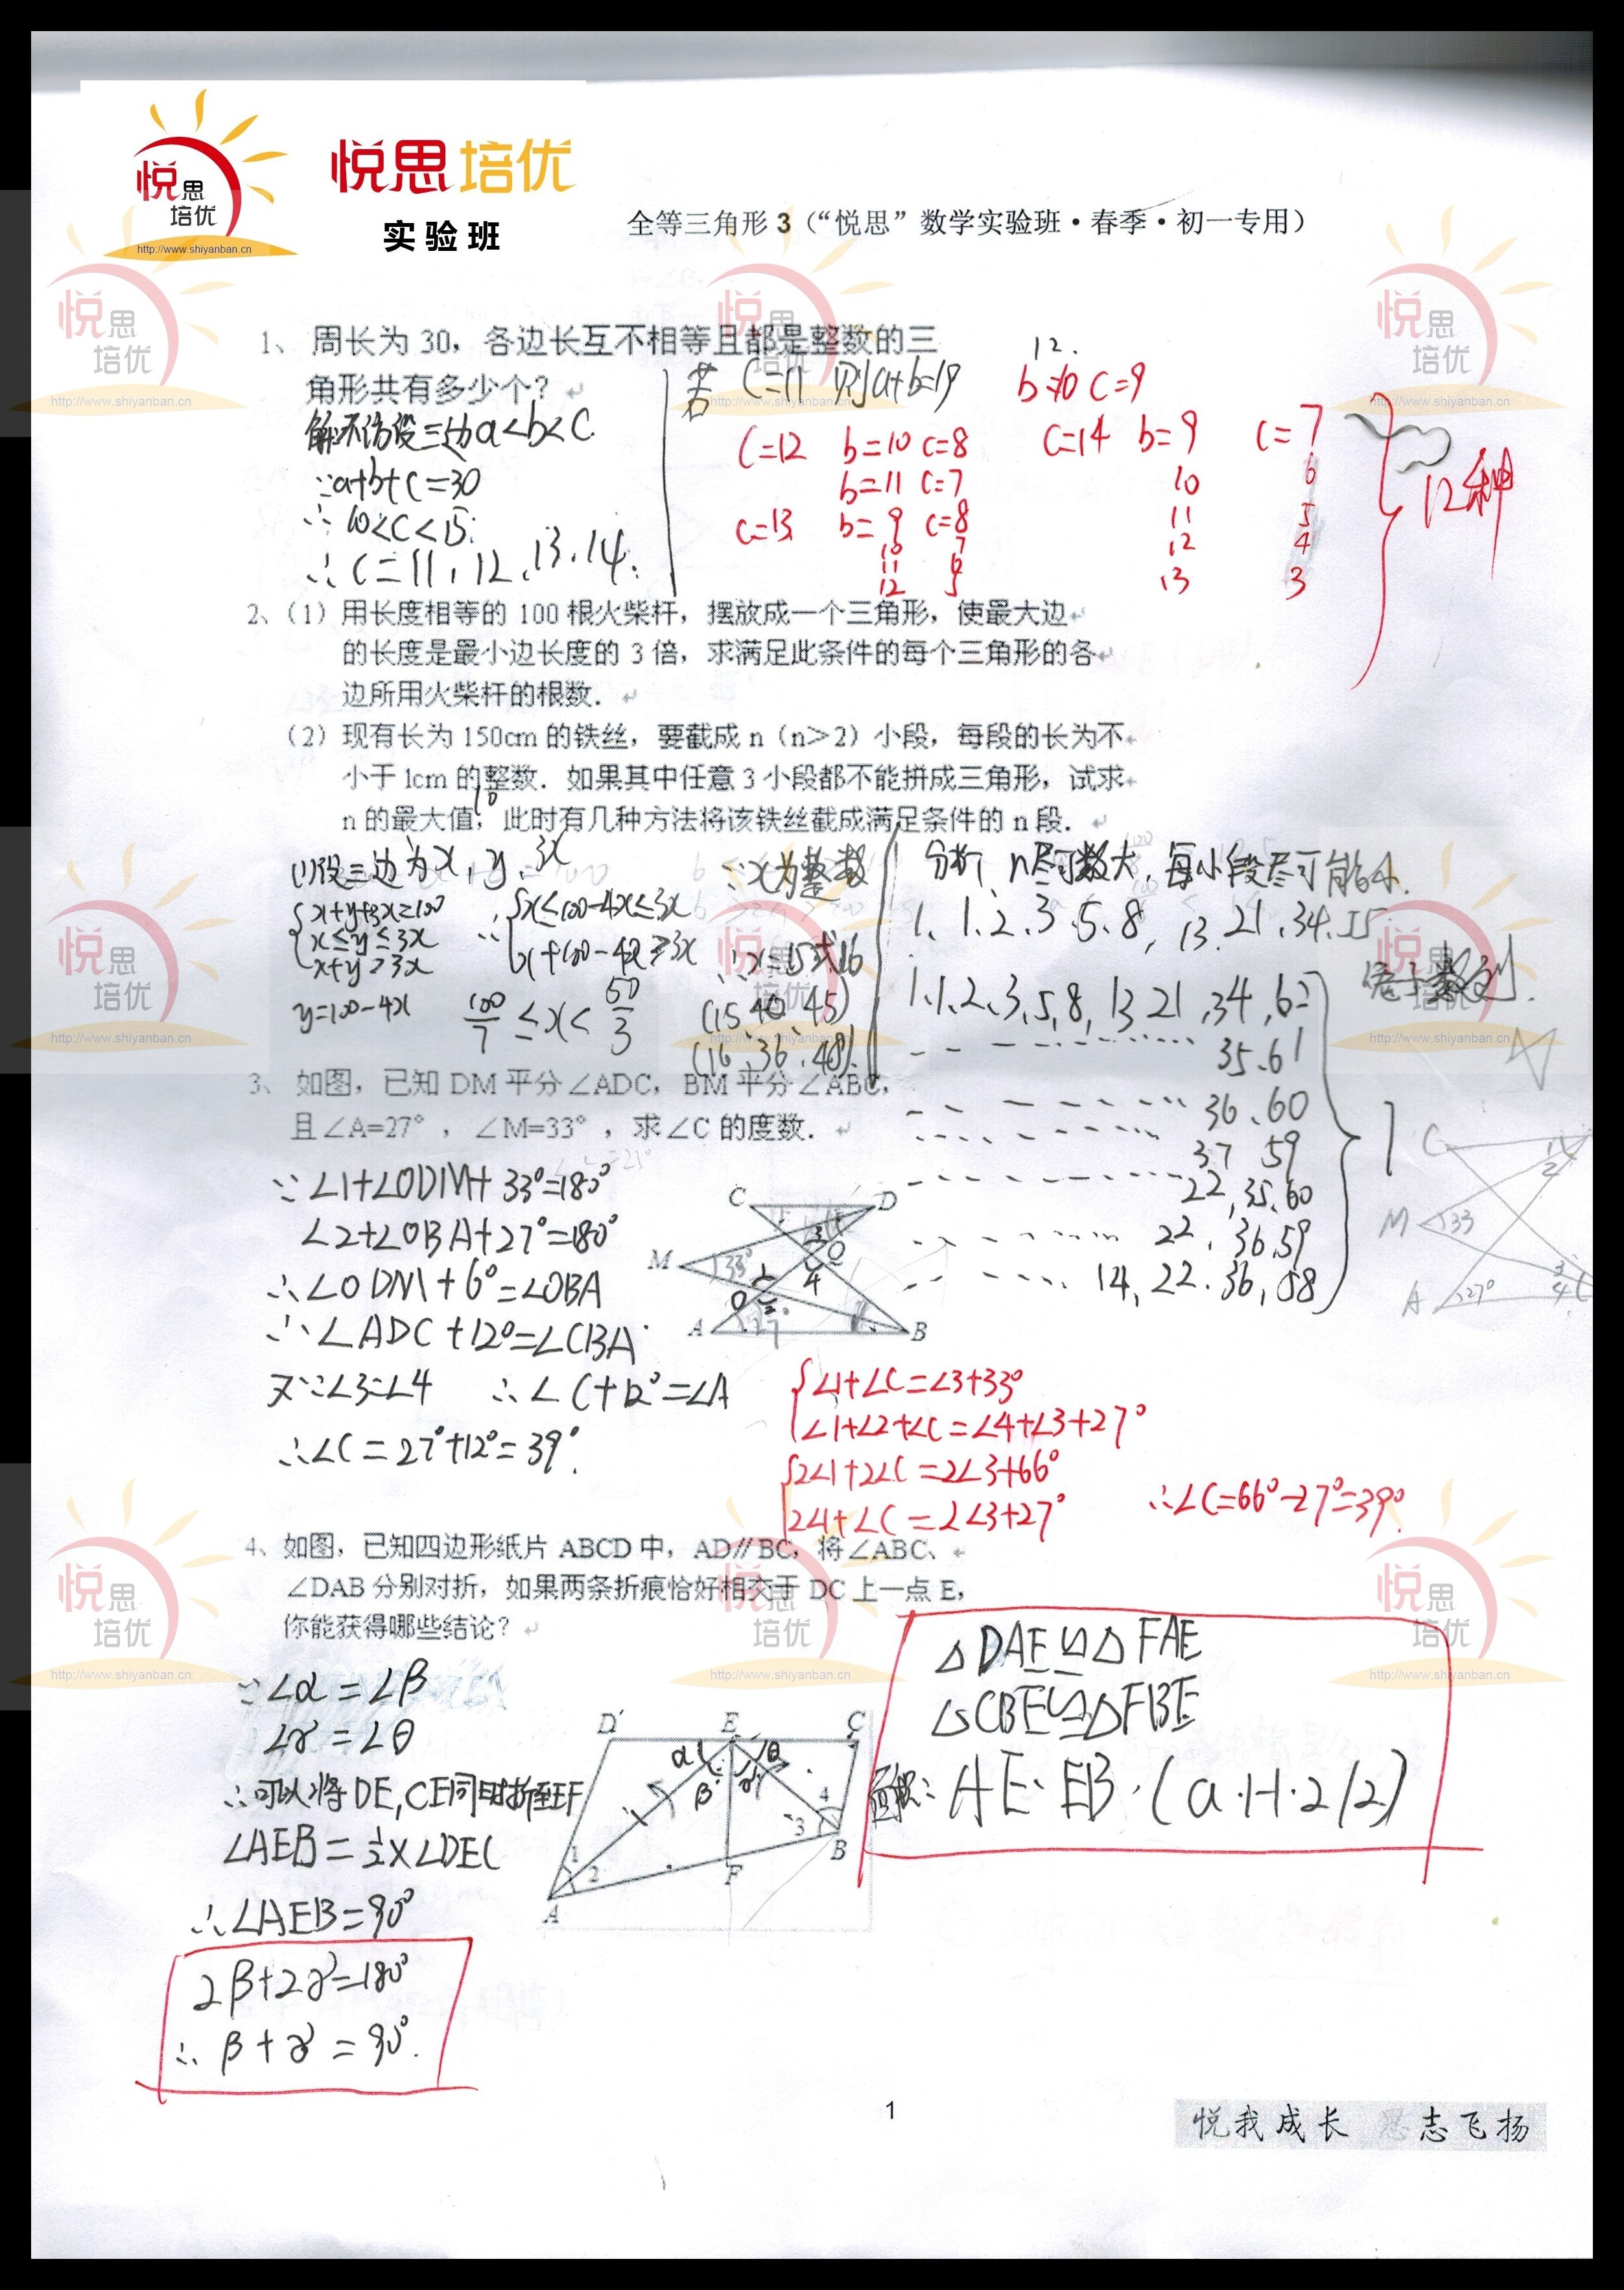 悦思培优
http://www.shiyanban.cn
悦思培优
实验班
全等三角形 3（“悦思”数学实验班·春季·初一专用）
1、 周长为 30，各边长互不相等且都是整数的三
角形共有多少个？
解：不妨设三边 a<b<c.
∵a+b+c=30
∴10<c<15.
∴c=11、12、13、14.
若 c=11 则 a+b=19
12.
b=10 c=9
c=12 b=10 c=8
b=11 c=7
c=13 b=9 c=8
10 7
11 6
12 5
c=14 b=9 c=7
10 6
11 5
12 4
13 3
12种
2、（1）用长度相等的 100 根火柴杆，摆放成一个三角形，使最大边
的长度是最小边长度的 3 倍，求满足此条件的每个三角形的各
边所用火柴杆的根数．
（2）现有长为 150cm 的铁丝，要截成 n（n＞2）小段，每段的长为不
小于 1cm 的整数．如果其中任意 3 小段都不能拼成三角形，试求
10
n 的最大值，此时有几种方法将该铁丝截成满足条件的 n 段．
(1)设三边为x, y, 3x
x+y+3x=100
x≤y≤3x
x+y>3x
y=100-4x
∴ x≤100-4x≤3x
x+100-4x>3x
100/7 ≤x< 50/3
∵x为整数
∴x=15或16
(15、40、45)
(16、36、48).
分析 n尽可能大，每小段尽可能小.
1、1、2、3、5、8, 13、21、34、55
1、1、2、3、5、8, 13, 21, 34, 62
35、61
36、60
37 59
22, 35, 60
22, 36, 59
14, 22、36, 58
数列.
3、 如图，已知 DM 平分∠ADC，BM 平分∠ABC，
且∠A=27°，∠M=33°，求∠C 的度数．
∵∠1+∠ODM+33°=180°
∠2+∠OBA+27°=180°
∴∠ODM+6°=∠OBA
∴∠ADC+12°=∠CBA
又∵∠3=∠4 ∴∠C+12°=∠A
∴∠C=27°+12°=39°.
C D
M 33° 3 Q
1 4
O 2
A 27 B
C 1 2
M 33
3
A 27° 4
∠1+∠C=∠3+33°
∠1+∠2+∠C=∠4+∠3+27°
2∠1+2∠C=2∠3+66°
2∠1+∠C=2∠3+27°
∴∠C=66°-27°=39°.
4、如图，已知四边形纸片 ABCD 中，AD∥BC，将∠ABC、
∠DAB 分别对折，如果两条折痕恰好相交于 DC 上一点 E，
你能获得哪些结论？
∵∠α=∠β
∠γ=∠θ
∴可以将DE, CE同时折至EF
∠AEB=½×∠DEC
∴∠AEB=90°
2β+2γ=180°
∴β+γ=90°.
D E C
α θ
β γ
4
3 B
1
2 F
A
△DAE≌△FAE
△CBE≌△FBE
面积: AE·EB·(a·H·2/2)
1
悦我成长 思志飞扬